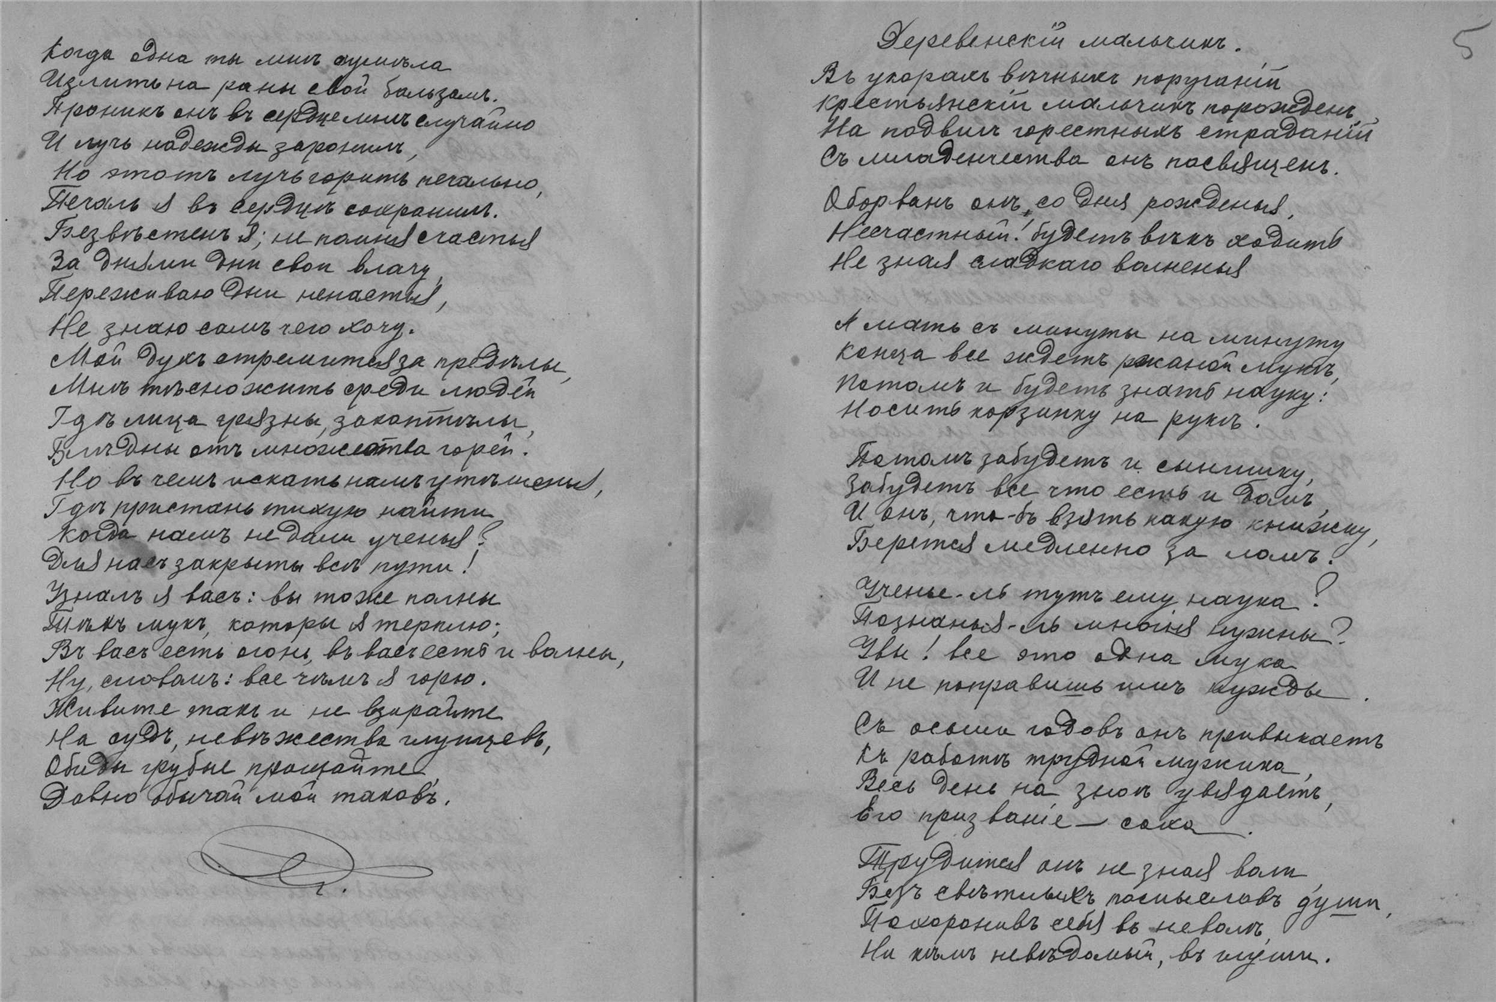 Когда одна ты мнѣ сумѣла
Излить на раны свой бальзамъ.
Проникъ онъ въ сердце мнѣ случайно
И лучъ надежды заронилъ,
Но этотъ лучъ горитъ печально,
Печаль я въ сердцѣ сохранилъ.
Безвѣстенъ я; не помня счастья
За днями дни свои влачу,
Переживаю дни ненастья,
Не знаю самъ чего хочу.
Мой духъ стремится за предѣлы,
Мнѣ тѣсно жить среди людей
Гдѣ лица грязны, закоптѣлы,
Блѣдны отъ множества горей.
Но въ чемъ искать намъ утѣшенья,
Гдѣ пристань тихую найти
Когда намъ не дали ученья?
Для насъ закрыты всѣ пути!
Узналъ я васъ: вы тоже полны
Тѣхъ мукъ, которы я терплю;
Въ васъ есть огонь, въ васъ есть и волны,
Ну, словомъ: все чѣмъ я горю.
Живите такъ и не взирайте
На судъ, невѣжества глупцевъ,
Обиды грубые прощайте,
Давно обычай мой таковъ.
Деревенскій мальчикъ.
5
Въ укорахъ вѣчныхъ поруганій
Крестьянскій мальчикъ порожденъ,
На подвигъ горестныхъ страданій
Съ младенчества онъ посвященъ.
Оборванъ онъ, со дня рожденья,
Несчастный! будетъ вѣкъ ходить
Не зная сладкаго волненья
А мать съ минуты на минуту
Конца все ждетъ ржаной мукѣ,
Потомъ и будетъ знать науку:
Носить корзинку на рукѣ.
Потомъ забудетъ и сынишку,
Забудетъ все что есть и домъ
И онъ, что-бъ взять какую книжку,
Берется медленно за ломъ.
Ученье-ль тутъ ему наука?
Познанья-ль многія нужны?
Увы! все это одна мука
И не поправишь имъ нужды.
Съ осьми годовъ онъ привыкаетъ
Къ работѣ трудной мужика,
Весь день на зноѣ увядаетъ,
Его призваніе — соха.
Трудится онъ не зная воли
Безъ свѣтлыхъ помысловъ души,
Похоронивъ себя въ неволѣ,
Ни кѣмъ невѣдомый, въ глуши.